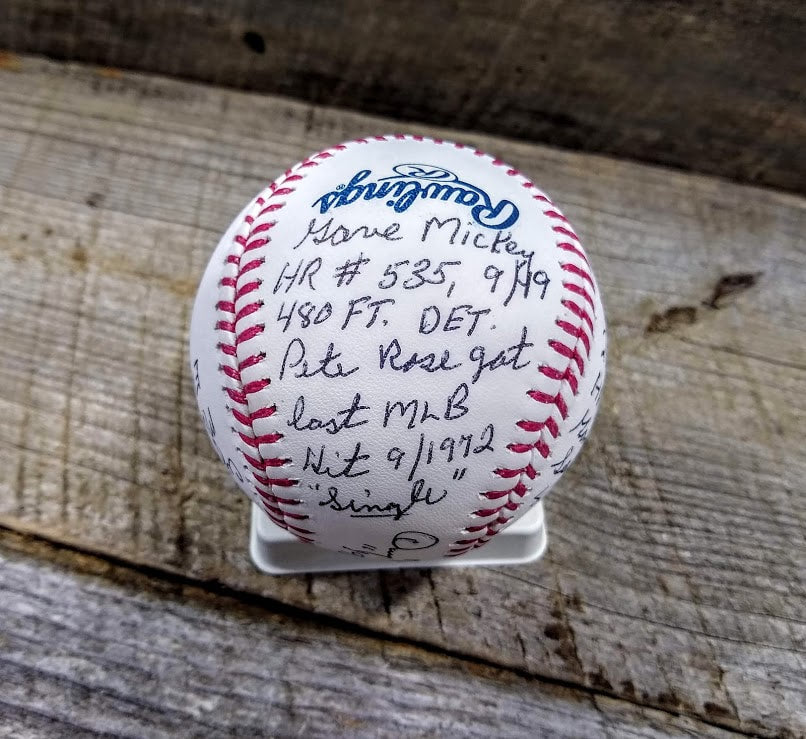 Rawlings
Gave Mickey
HR # 535, 9/19
480 FT. DET.
Pete Rose got
last MLB
Hit 9/1972
"Single"